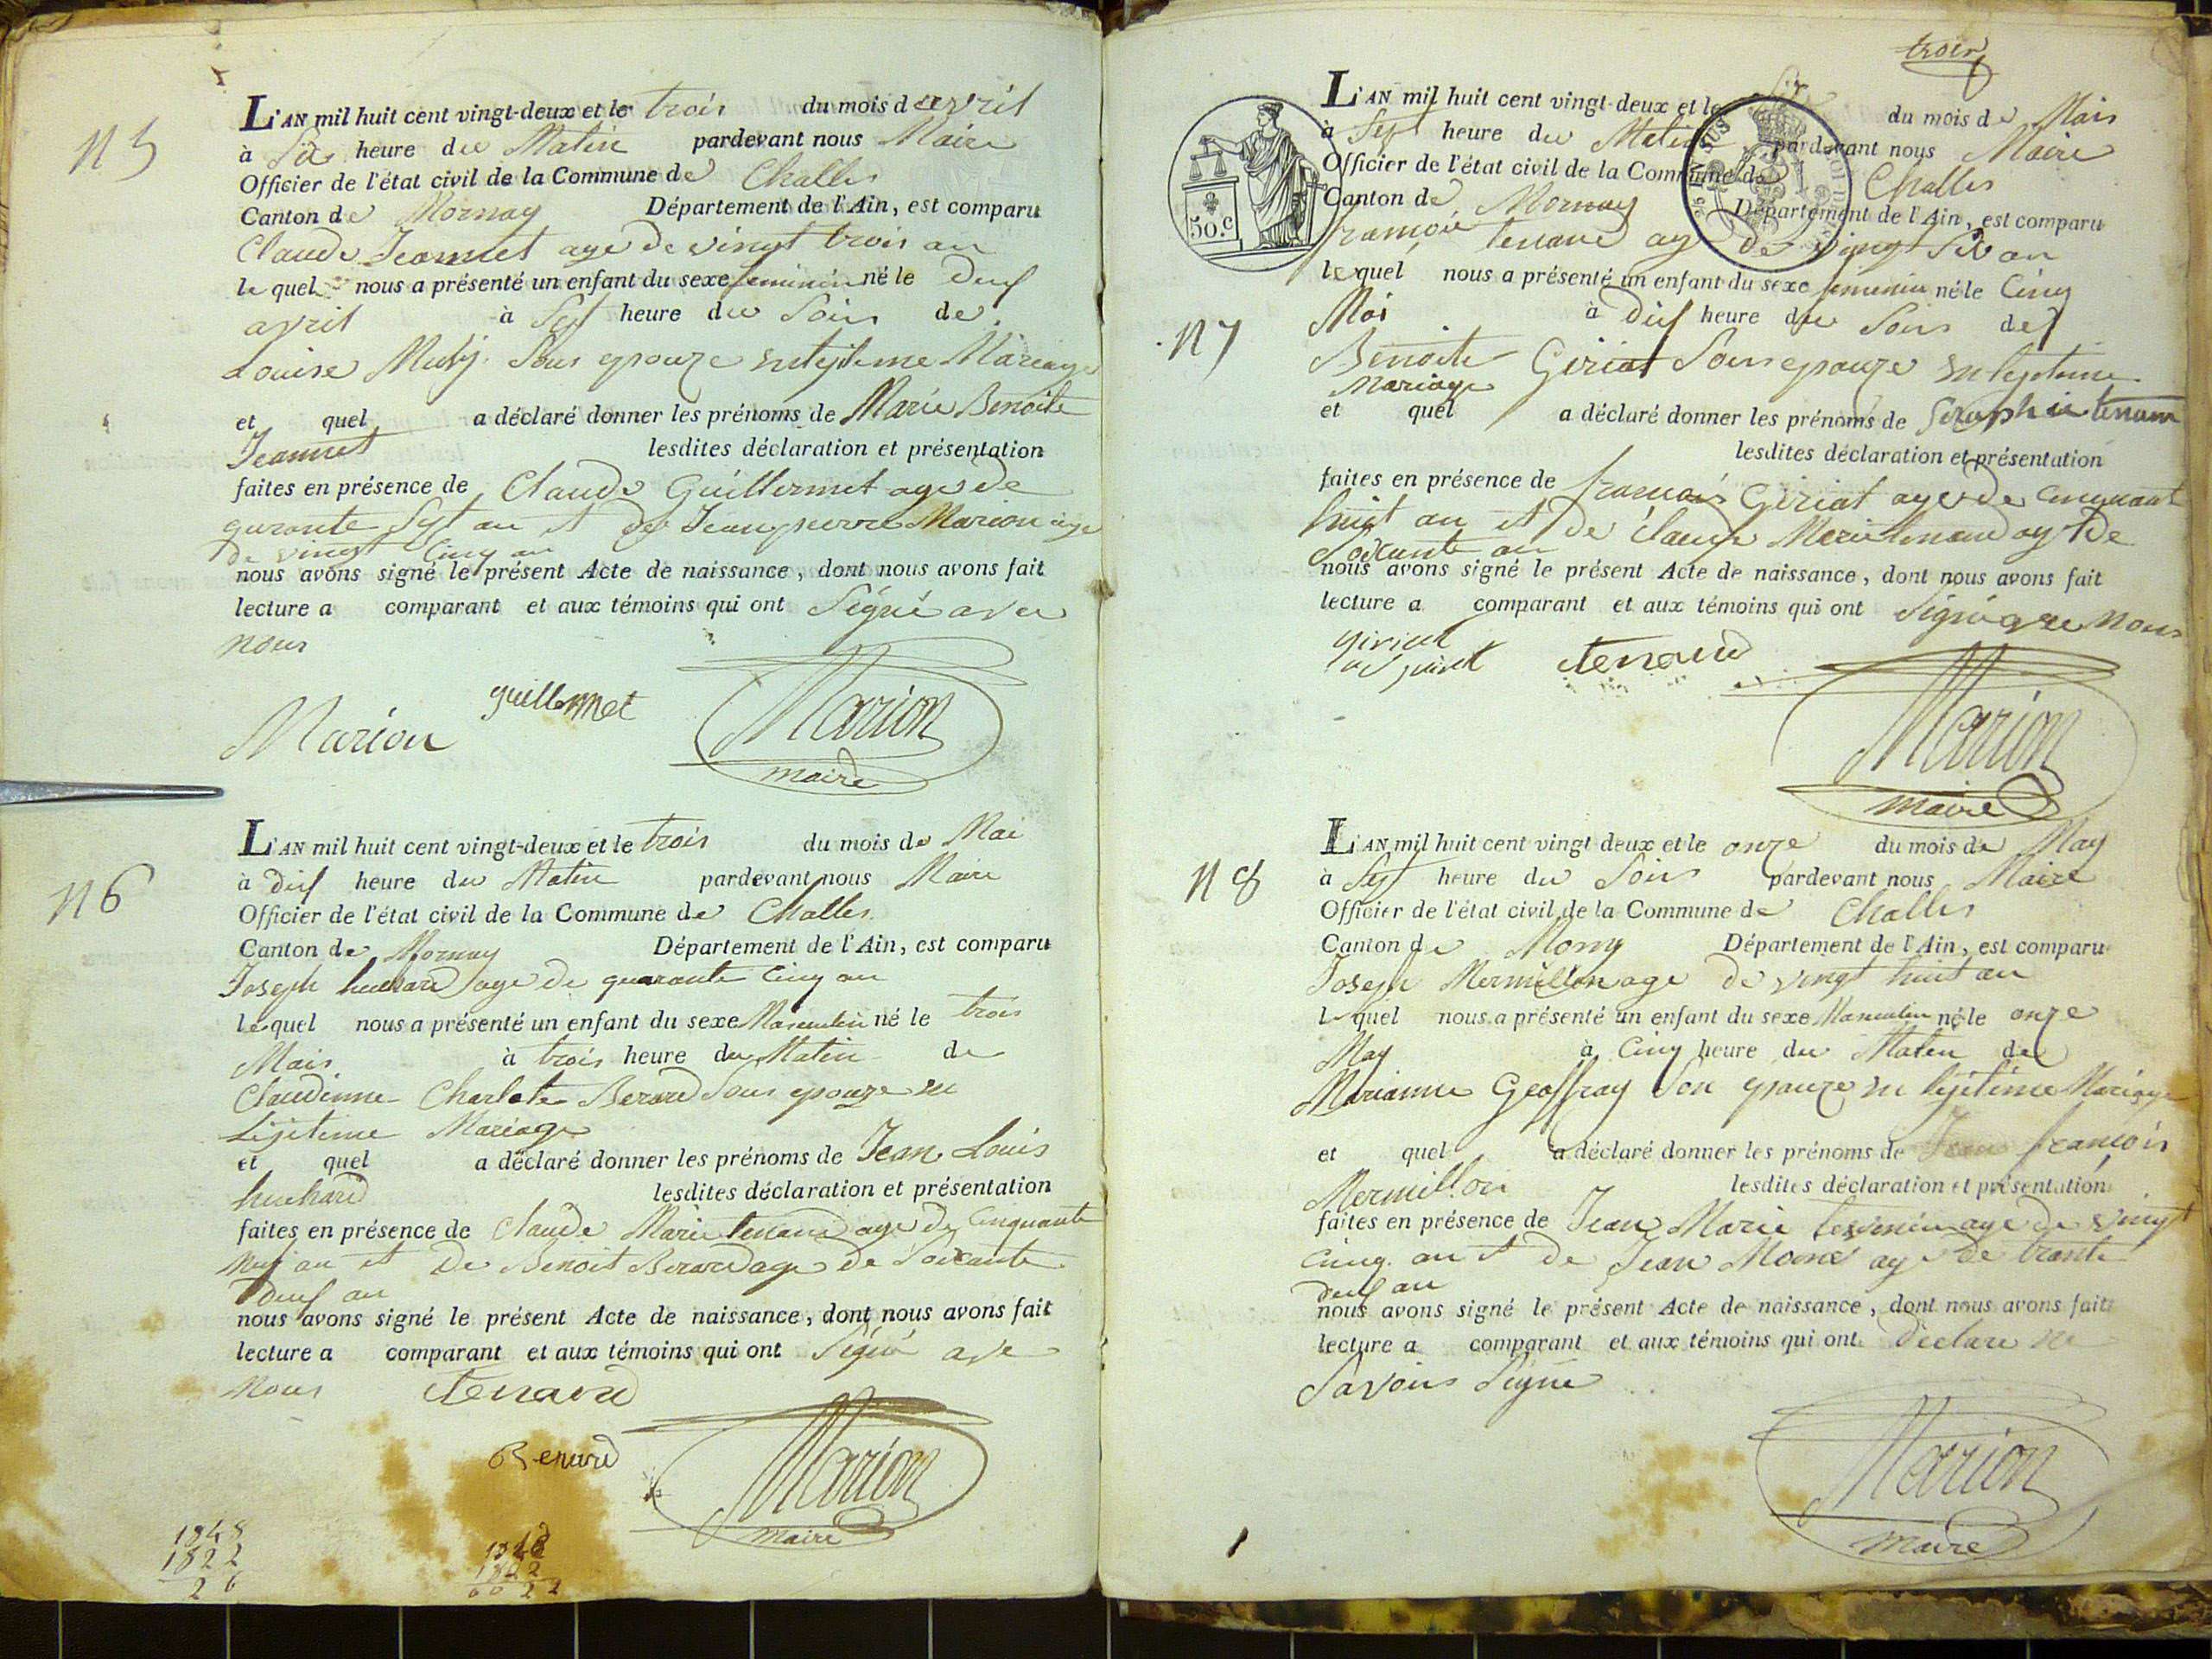 N 5
L'AN mil huit cent vingt-deux et le trois du mois d avril
à Six heure du Matin pardevant nous Maire
Officier de l'état civil de la Commune de Challes
Canton de Mornay Département de l'Ain, est comparu
Claude Jeannet age de vingt trois an
le quel nous a présenté un enfant du sexe feminin né le deux
avril à Sept heure du Soir de
Louise Sous epouze Mariage
et quel a déclaré donner les prénoms de Marie Benoite
Jeannet lesdites déclaration et présentation
faites en présence de Claude Guillermet age de
quarante Sept an et de Jean pierre Marion age
de vingt Cinq an
nous avons signé le présent Acte de naissance, dont nous avons fait
lecture a comparant et aux témoins qui ont Signé avec
nous
Marion guillermet Marion
maire
N 6
L'AN mil huit cent vingt-deux et le trois du mois de Mai
à dix heure du Matin pardevant nous Maire
Officier de l'état civil de la Commune de Challes
Canton de Mornay Département de l'Ain, est comparu
Joseph huchard age de quarante Cinq an
le quel nous a présenté un enfant du sexe Masculin né le trois
Mais à trois heure du Matin de
Claudinne Charlote Berard Sous epouze en
Legitime Mariage
et quel a déclaré donner les prénoms de Jean Louis
huchard lesdites déclaration et présentation
faites en présence de Claude Marie tenand age de Cinquante
neuf an et de Benoit Berard age de Soixante
deux an
nous avons signé le présent Acte de naissance, dont nous avons fait
lecture a comparant et aux témoins qui ont Signé ave
Nous tenand
Berard Marion
maire
1848
1822
26
1822
trois
50.c
L'AN mil huit cent vingt-deux et le Six du mois de Mais
à Sept heure du Matin pardevant nous Maire
Officier de l'état civil de la Commune de Challes
Canton de Mornay Département de l'Ain, est comparu
francois tenand ag de vingt Six an
le quel nous a présenté un enfant du sexe feminin né le Cinq
Mai à dix heure du Soir de
N 7
Benoite Giriat Sous epouze en legitime
Mariage
et quel a déclaré donner les prénoms de
lesdites déclaration et présentation
faites en présence de francois Giriat age de Cinquant
huit an et de Claude Marie tenand ag de
Soixante an
nous avons signé le présent Acte de naissance, dont nous avons fait
lecture a comparant et aux témoins qui ont Signé avec Nous
giriat
adjoint tenand Marion
maire
N 8
L'AN mil huit cent vingt deux et le onze du mois de May
à Sept heure du Soir pardevant nous Maire
Officier de l'état civil de la Commune de Challes
Canton de Département de l'Ain, est comparu
Joseph Mermillon age de vingt huit an
l quel nous a présenté un enfant du sexe Masculin né le onze
May à Cinq heure du Maten de
Marianne Geoffray Son epouze en legitime Mariage
et quel a déclaré donner les prénoms de Jean francois
Mermillon lesdites déclaration et présentation
faites en présence de Jean Marie age de vingt
Cinq an et de Jean ag de trante
deux an
nous avons signé le présent Acte de naissance, dont nous avons fait
lecture a comparant et aux témoins qui ont declare ne
Savoir Signe
Marion
maire